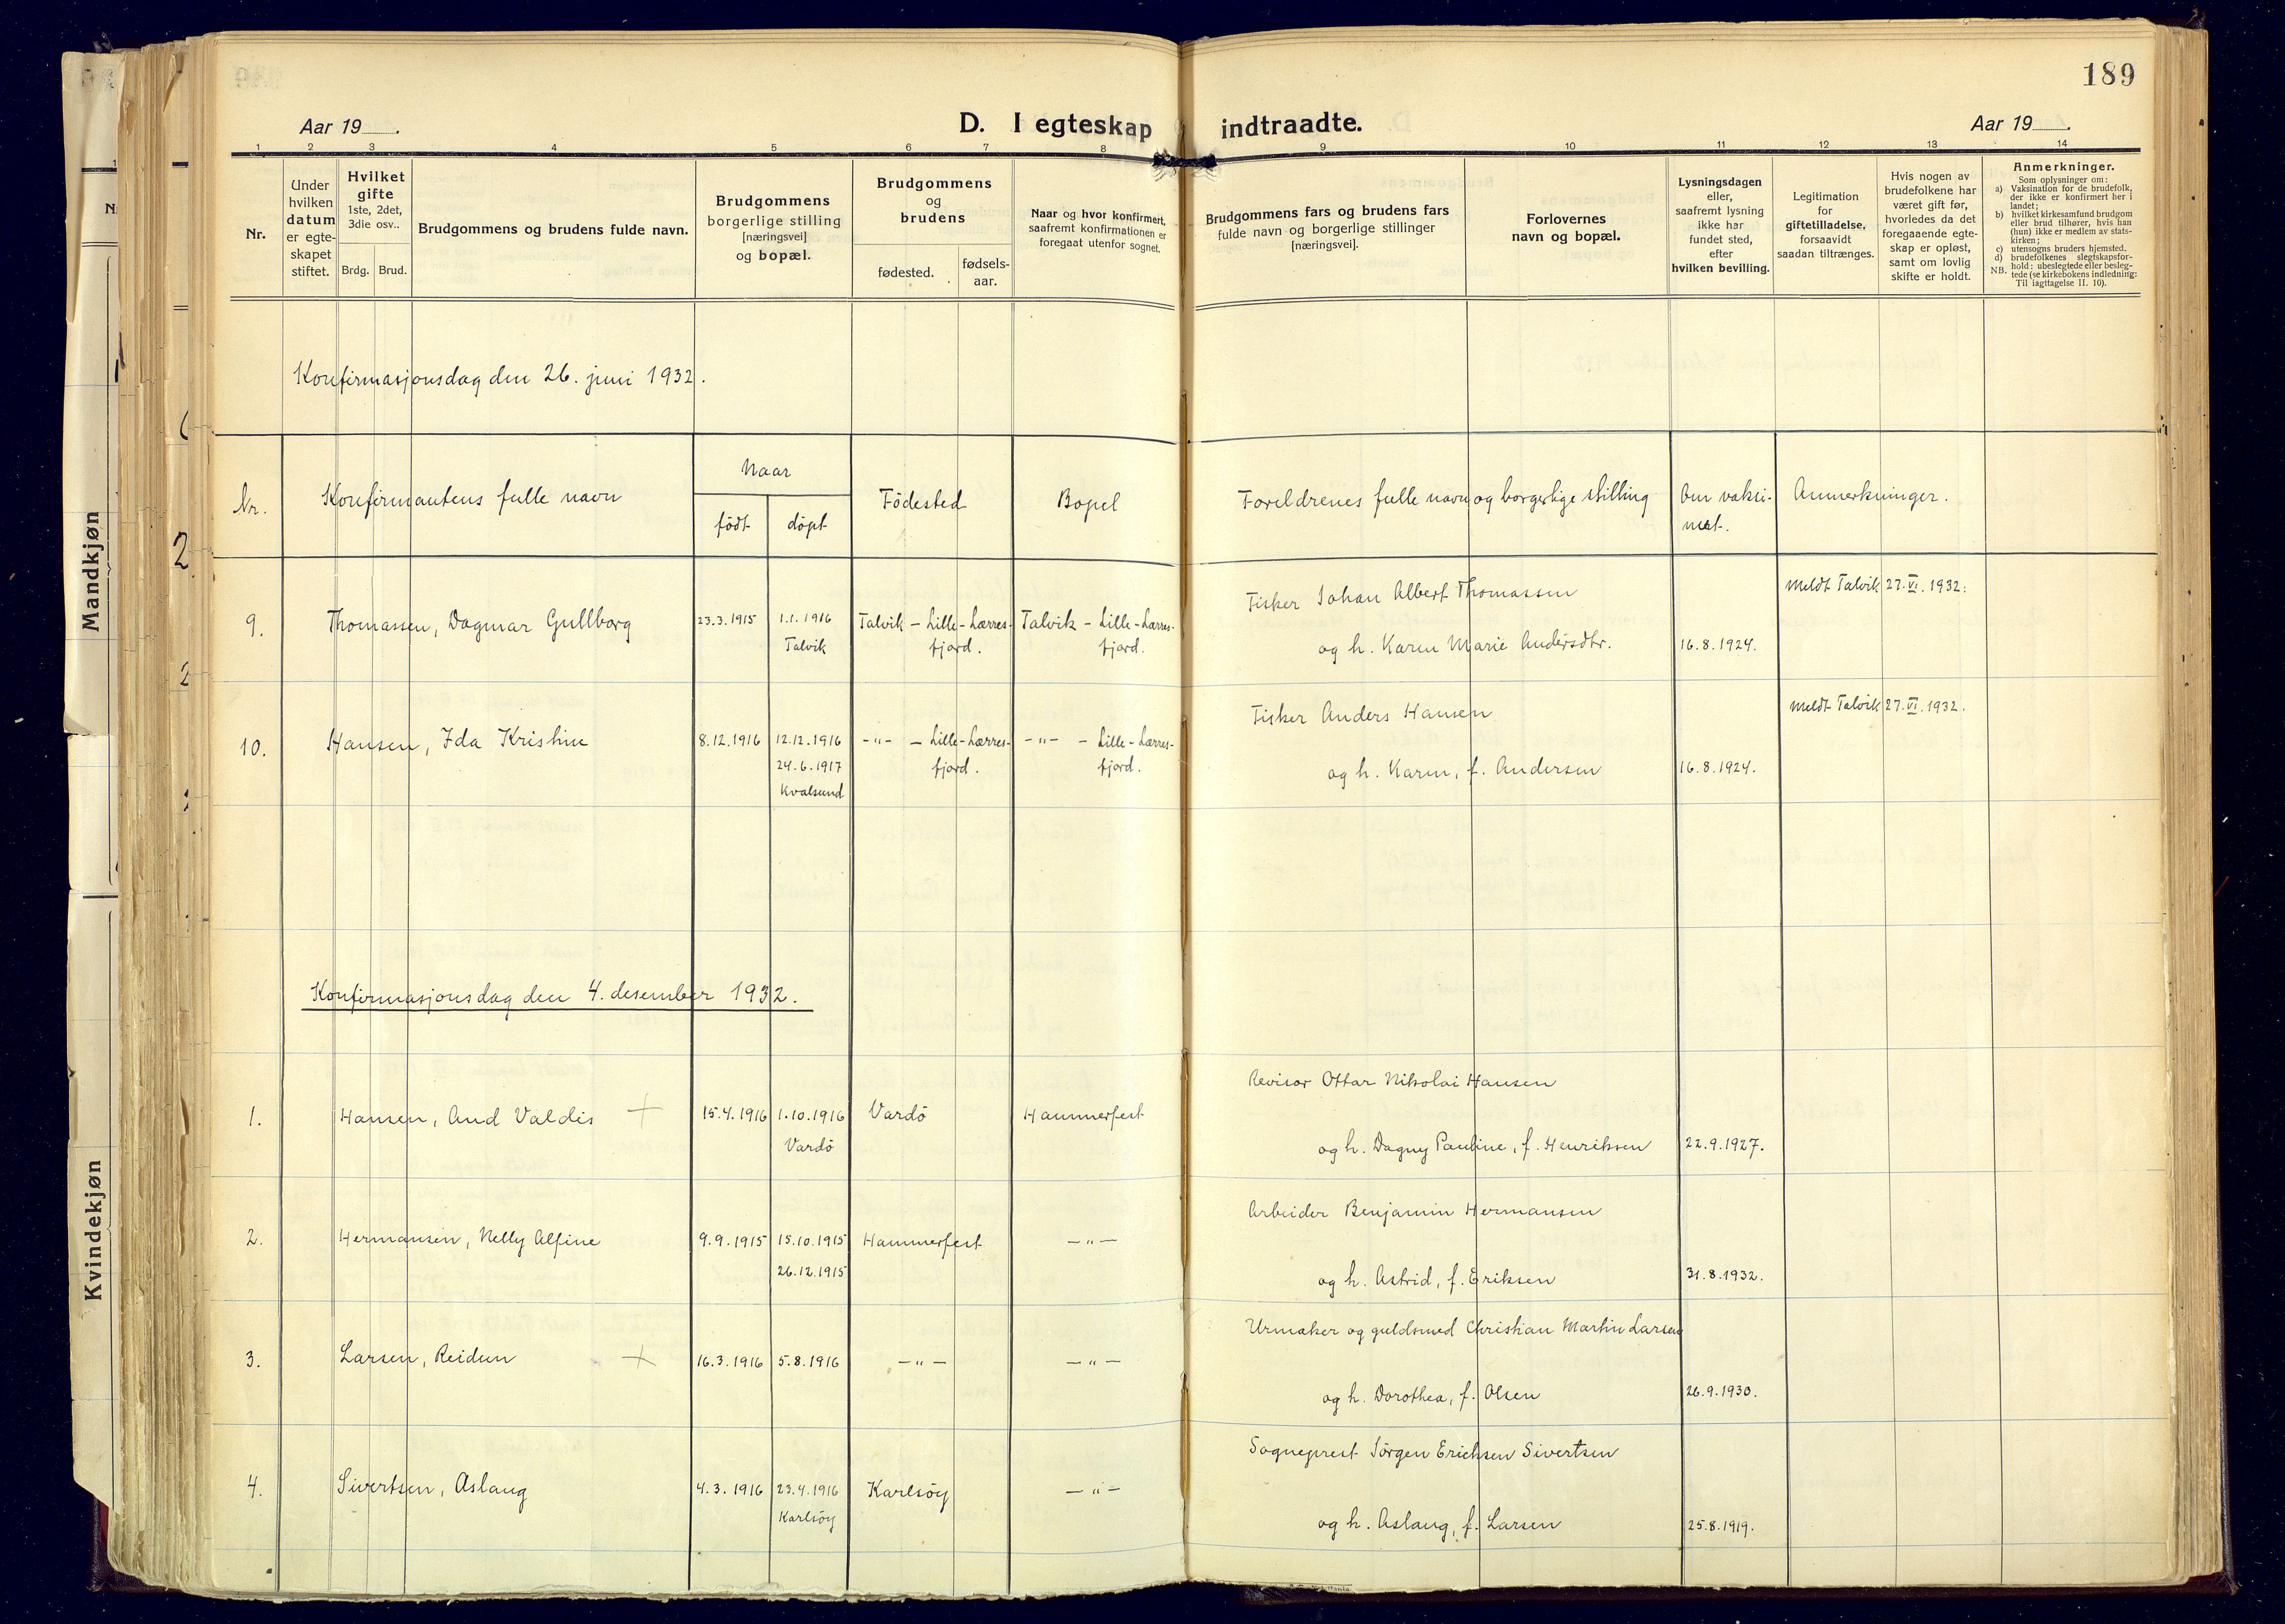 189
Aar 19 .
D. I egteskap indtraadte.
Aar 19 .
1 2 3 4 5 6 7 8 9 10 11 12 13 14
Nr.
Under
hvilken
datum
er egte-
skapet
stiftet.
Hvilket
gifte
1ste, 2det,
3die osv..
Brdg. Brud.
Brudgommens og brudens fulde navn.
Brudgommens
borgerlige stilling
[næringsvei]
og bopæl.
Brudgommens
og
brudens
fødested.
fødsels-
aar.
Naar og hvor konfirmert,
saafremt konfirmationen er
foregaat utenfor sognet.
Brudgommens fars og brudens fars
fulde navn og borgerlige stillinger
[næringsvei].
Forlovernes
navn og bopæl.
Lysningsdagen
eller,
saafremt lysning
ikke har
fundet sted,
efter
hvilken bevilling.
Legitimation
for
giftetilladelse,
forsaavidt
saadan tiltrænges.
Hvis nogen av
brudefolkene har
været gift før,
hvorledes da det
foregaaende egte-
skap er opløst,
samt om lovlig
skifte er holdt.
Anmerkninger.
Som oplysninger om:
a) Vaksination for de brudefolk,
der ikke er konfirmert her i
landet;
b) hvilket kirkesamfund brudgom
eller brud tilhører, hvis han
(hun) ikke er medlem av stats-
kirken;
c) utensogns bruders hjemsted.
d) brudefolkenes slegtskapsfor-
NB. hold: ubeslegtede eller besleg-
tede (se kirkebokens indledning:
Til iagttagelse II. 10).
Konfirmasjonsdag den 26. juni 1932.
Nr.
Konfirmantens fulle navn
Naar
født døpt
Födested
Bopel
Foreldrenes fulle navn og borgerlige stilling
Om vaksi-
nert.
Anmerkninger.
9.
Thomassen, Dagmar Gullborg
23.3.1915
1.1.1916
Talvik
Talvik - Lille-Lærres-
fjord.
Talvik - Lille-Lærres-
fjord.
Fisker Johan Albert Thomassen
og h. Karen Marie Andersdtr.
16.8.1924.
Meldt Talvik 27.VI.1932.
10.
Hansen, Ida Kristine
8.12.1916
12.12.1916
24.6.1917
Kvalsund
-"- - Lille-Lærres-
fjord.
-"- - Lille-Lærres-
fjord.
Fisker Anders Hansen
og h. Karen, f. Andersen
16.8.1924.
Meldt Talvik 27.VI.1932.
Konfirmasjonsdag den 4. desember 1932.
1.
Hansen, Aud Valdis +
15.4.1916
1.10.1916
Vardö
Vardö
Hammerfest
Revisor Ottar Nikolai Hansen
og h. Dagny Pauline, f. Henriksen
22.9.1927.
2.
Hermansen, Nelly Alfine
9.9.1915
15.10.1915
26.12.1915
Hammerfest
-"-
Arbeider Benjamin Hermansen
og h. Astrid, f. Eriksen
31.8.1932.
3.
Larsen, Reidun +
16.3.1916
5.8.1916
-"-
-"-
Urmaker og guldsmed Christian Martin Larsen
og h. Dorothea, f. Olsen
26.9.1930.
4.
Sivertsen, Aslaug
4.3.1916
23.4.1916
Karlsöy
Karlsöy
-"-
Sogneprest Jörgen Erichsen Sivertsen
og h. Aslaug, f. Larsen
25.8.1919.
Mandkjøn
Kvindekjøn